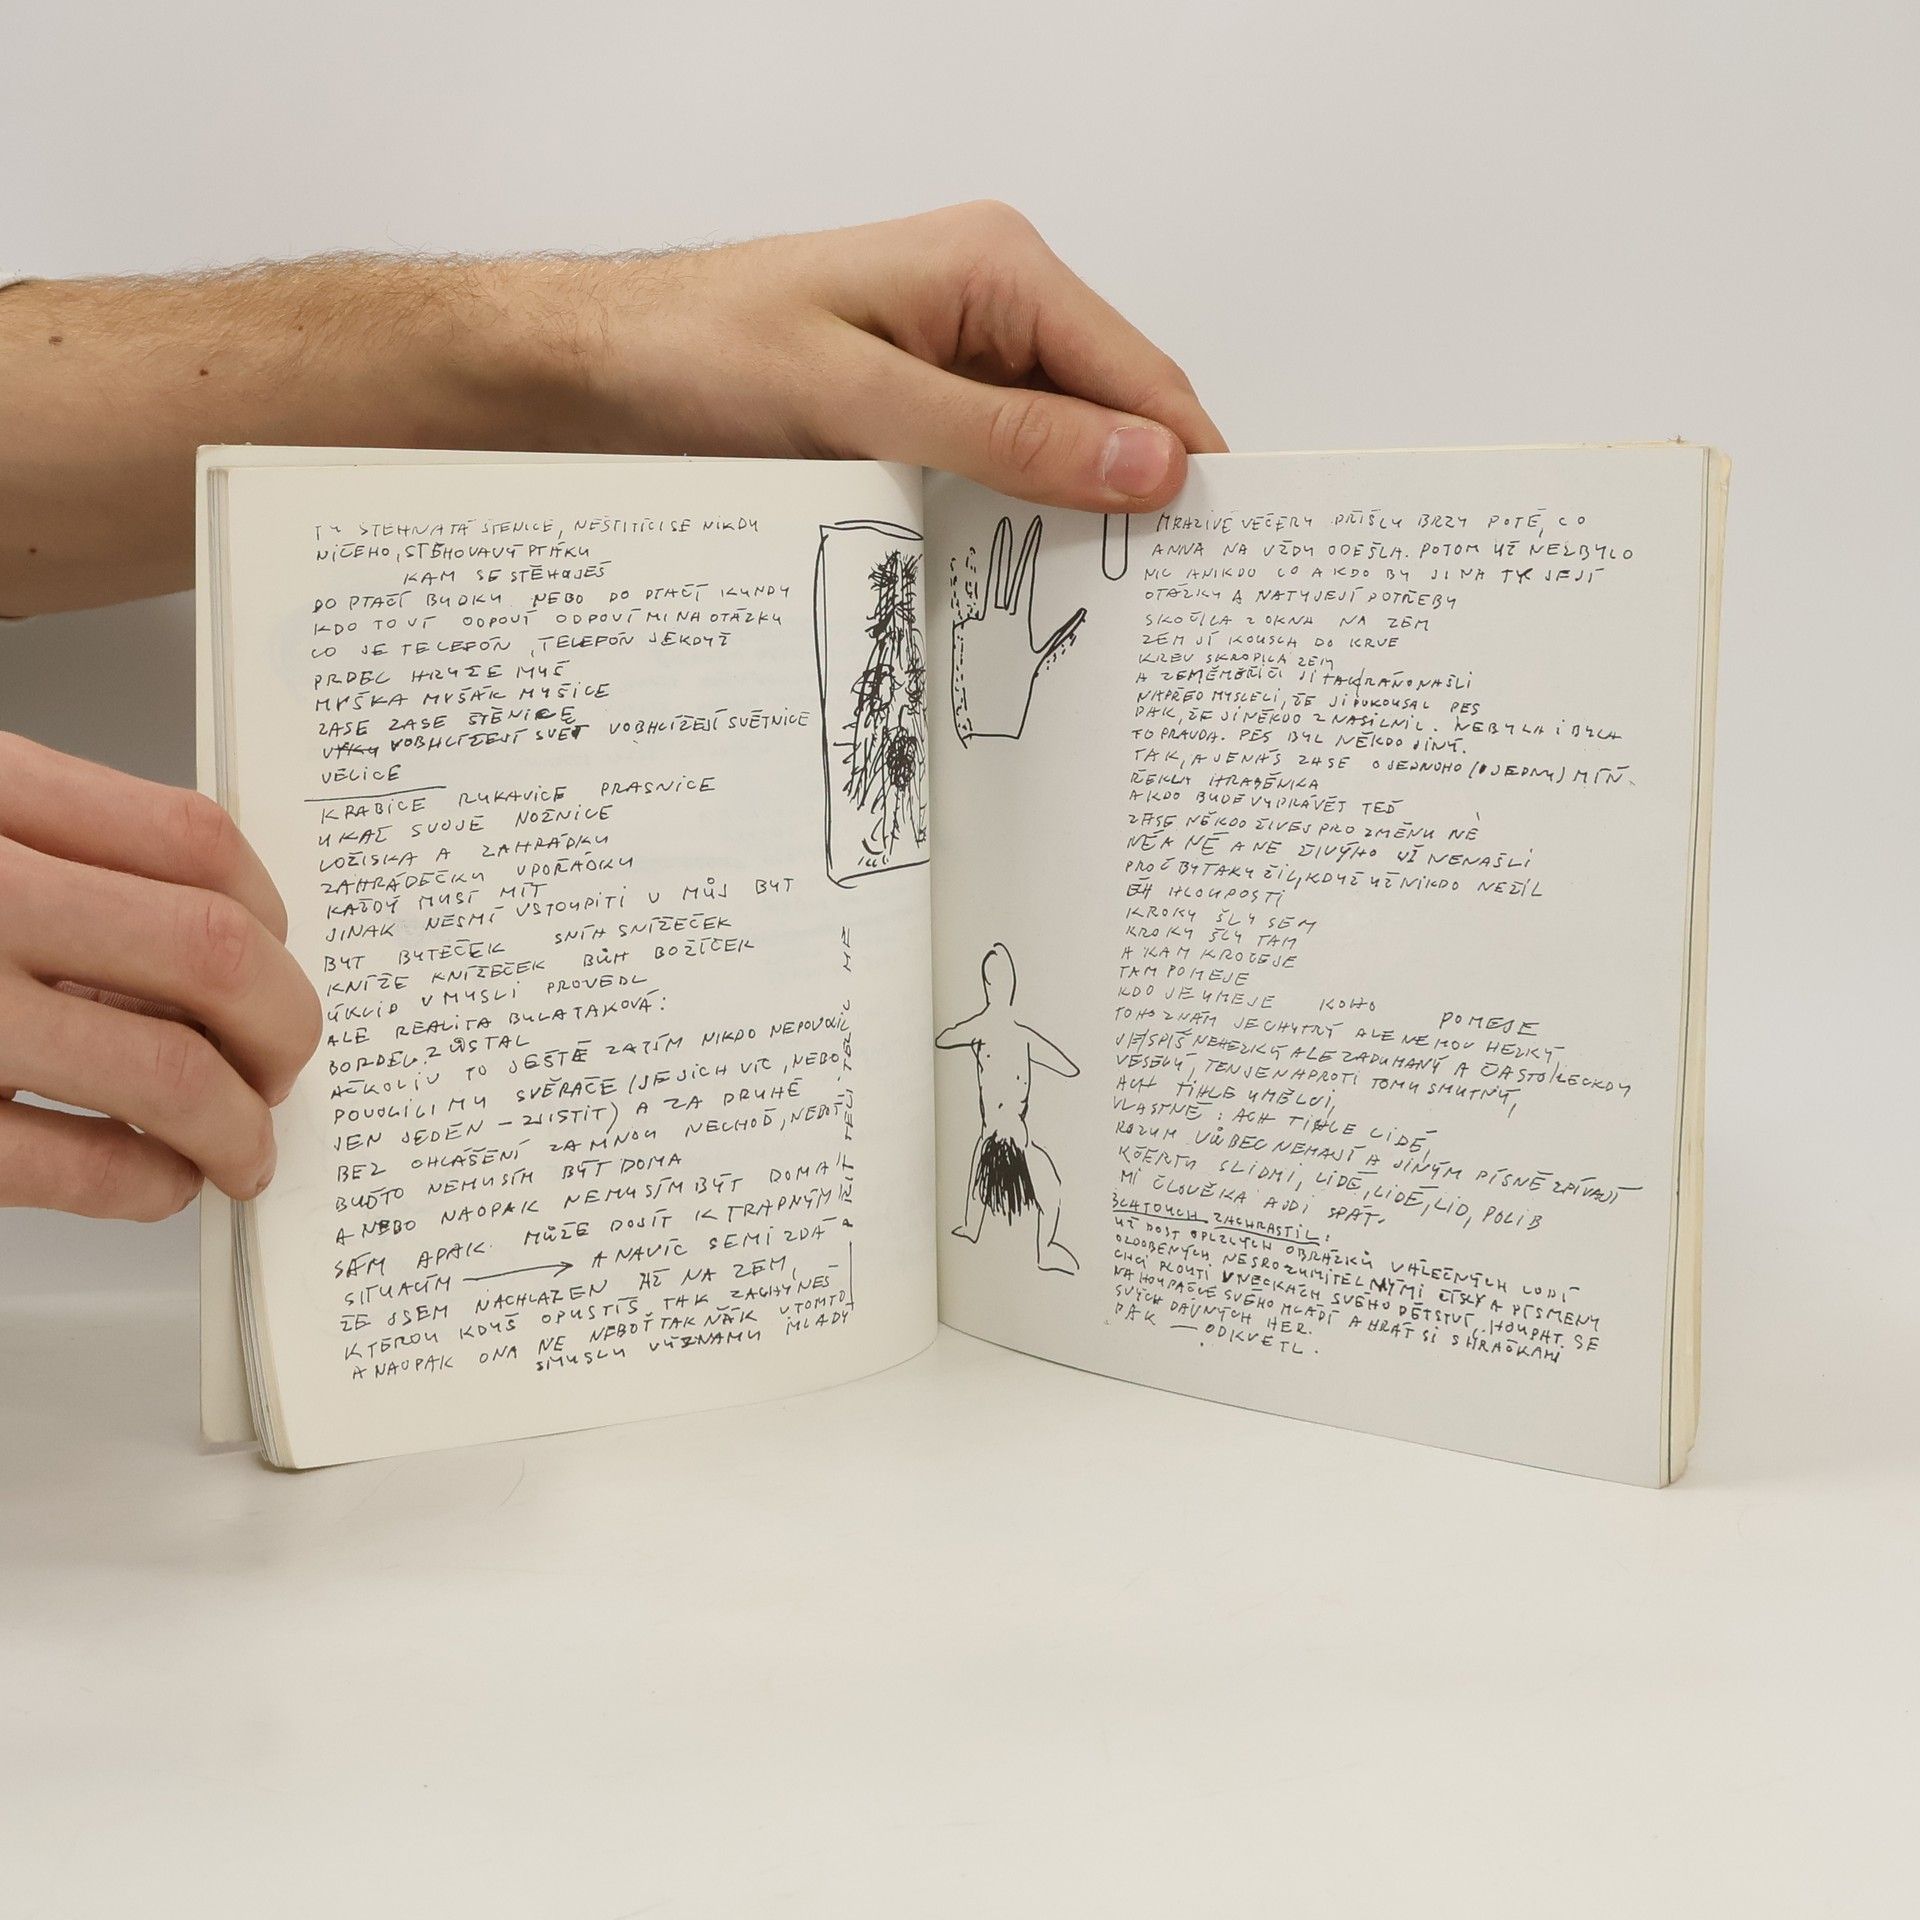 TY ŠTĚHNATÁ ŠTĚNICE, NEŠTÍTÍCÍ SE NIKDY
NIČEHO, STĚHOVAVÝ PTÁKU
KAM SE STĚHUJEŠ
DO PTAČÍ BUDKY NEBO DO PTAČÍ KUNDY
KDO TO VÍ ODPOVÍ ODPOVÍ MI NA OTÁZKU
CO JE TELEFÓN, TELEFÓN JEKDYŽ
PRDEL HRYŽE MYŠ
MYŠKA MYŠÁK MYŠICE
ZASE ZASE ŠTĚNICE
VOBHLÍŽEJÍ SVĚT VOBHLÍŽEJÍ SVĚTNICE
VELICE
KRABICE RUKAVICE PRASNICE
UKAŽ SVOJE NOŽNICE
LOŽISKA A ZAHRÁDKU
ZAHRÁDEČKU VPOŘÁDKU
KAŽDÝ MUSÍ MÍT
JINAK NESMÍ VSTOUPITI V MŮJ BYT
BYT BYTEČEK SNÍH SNÍŽEČEK
KNÍŽE KNÍŽEČEK BŮH BOŽÍČEK
ÚKLID V MYSLI PROVEDL
ALE REALITA BYLA TAKOVÁ:
BORDEL ZŮSTAL
AČKOLIV TO JEŠTĚ ZATÍM NIKDO NEPOVOLIL
POVOLILI MU SVĚRAČE (JE JICH VÍC, NEBO
JEN JEDEN – ZJISTIT) A ZA DRUHÉ
BEZ OHLÁŠENÍ ZA MNOU NECHOĎ, NEBOŤ
BUĎTO NEMUSÍM BÝT DOMA
A NEBO NAOPAK NEMUSÍM BÝT DOMA
SÁM A PAK MŮŽE DOJÍT K TRAPNÝM
SITUACÍM → A NAVÍC SE MI ZDÁ
ŽE JSEM NACHLAZEN AŽ NA ZEM,
KTEROU KDYŽ OPUSTÍŠ TAK ZAHYNEŠ
A NAOPAK ONA NE NEBOŤ TAK ŇÁK V TOMTO
SMYSLU VÝZNAMU MLADÝ
MRAZIVÉ VEČERY PŘIŠLY BRZY POTÉ, CO
ANNA NA VŽDY ODEŠLA. POTOM UŽ NEZBYLO
NIC ANIKDO CO A KDO BY JI NA TY JEJÍ
OTÁZKY A NA TY JEJÍ POTŘEBY
SKOČILA Z OKNA NA ZEM
ZEM JÍ KOUSLA DO KRVE
KREV SKROPILA ZEM
A ZEMĚMĚŘIČI JI TAK RÁNO NAŠLI
NAPŘED MYSLELI, ŽE JI POKOUSAL PES
PAK, ŽE JI NĚKDO ZNÁSILNIL. NEBYLA I BYLA
TO PRAVDA. PES BYL NĚKDO JINÝ.
TAK, A JE NÁS ZASE O JEDNOHO (O JEDNU) MÍŇ
ŘEKLA HRABĚNKA
A KDO BUDE VYPRÁVĚT TEĎ
ZASE NĚKDO ŽIVEJ PRO ZMĚNU NÉ
NÉ A NÉ A NE ŽIVÝHO UŽ NENAŠLI
PROČ BY TAKY ŽIL, KDYŽ UŽ NIKDO NEŽIL
EH HLOUPOSTI
KROKY ŠLY SEM
KROKY ŠLY TAM
A KAM KROČEJE
TAM POMEJE
KDO JE UMEJE KOHO POMEJE
TOHO ZNÁM JE CHYTRÝ ALE NE MOC HEZKÝ,
JE SPÍŠ NEHEZKÝ ALE ZADUMANÝ A ČASTO LECKDY
VESELÝ, TEN JE NAPROTI TOMU SMUTNÝ,
ACH TIHLE UMĚLCI,
VLASTNĚ: ACH TIHLE LIDÉ,
ROZUM VŮBEC NEMAJÍ A JINÝM PÍSNĚ ZPÍVAJÍ
KČERTU S LIDMI, LIDÉ, LIDÉ, LID, POLIB
MI ČLOVĚKA A JDI SPÁT.
BLATOUCH ZACHRASTIL:
UŽ DOST OPLZLÝCH OBRÁZKŮ VÁLEČNÝCH LODÍ
OZDOBENÝCH NESROZUMITELNÝMI ČÍSLY A PÍSMENY
CHCI PLOUTI V NECKÁCH SVÉHO DĚTSTVÍ, HOUPAT SE
NA HOUPAČCE SVÉHO MLÁDÍ A HRÁT SI S HRAČKAMI
SVÝCH DÁVNÝCH HER.
PAK — ODKVETL.